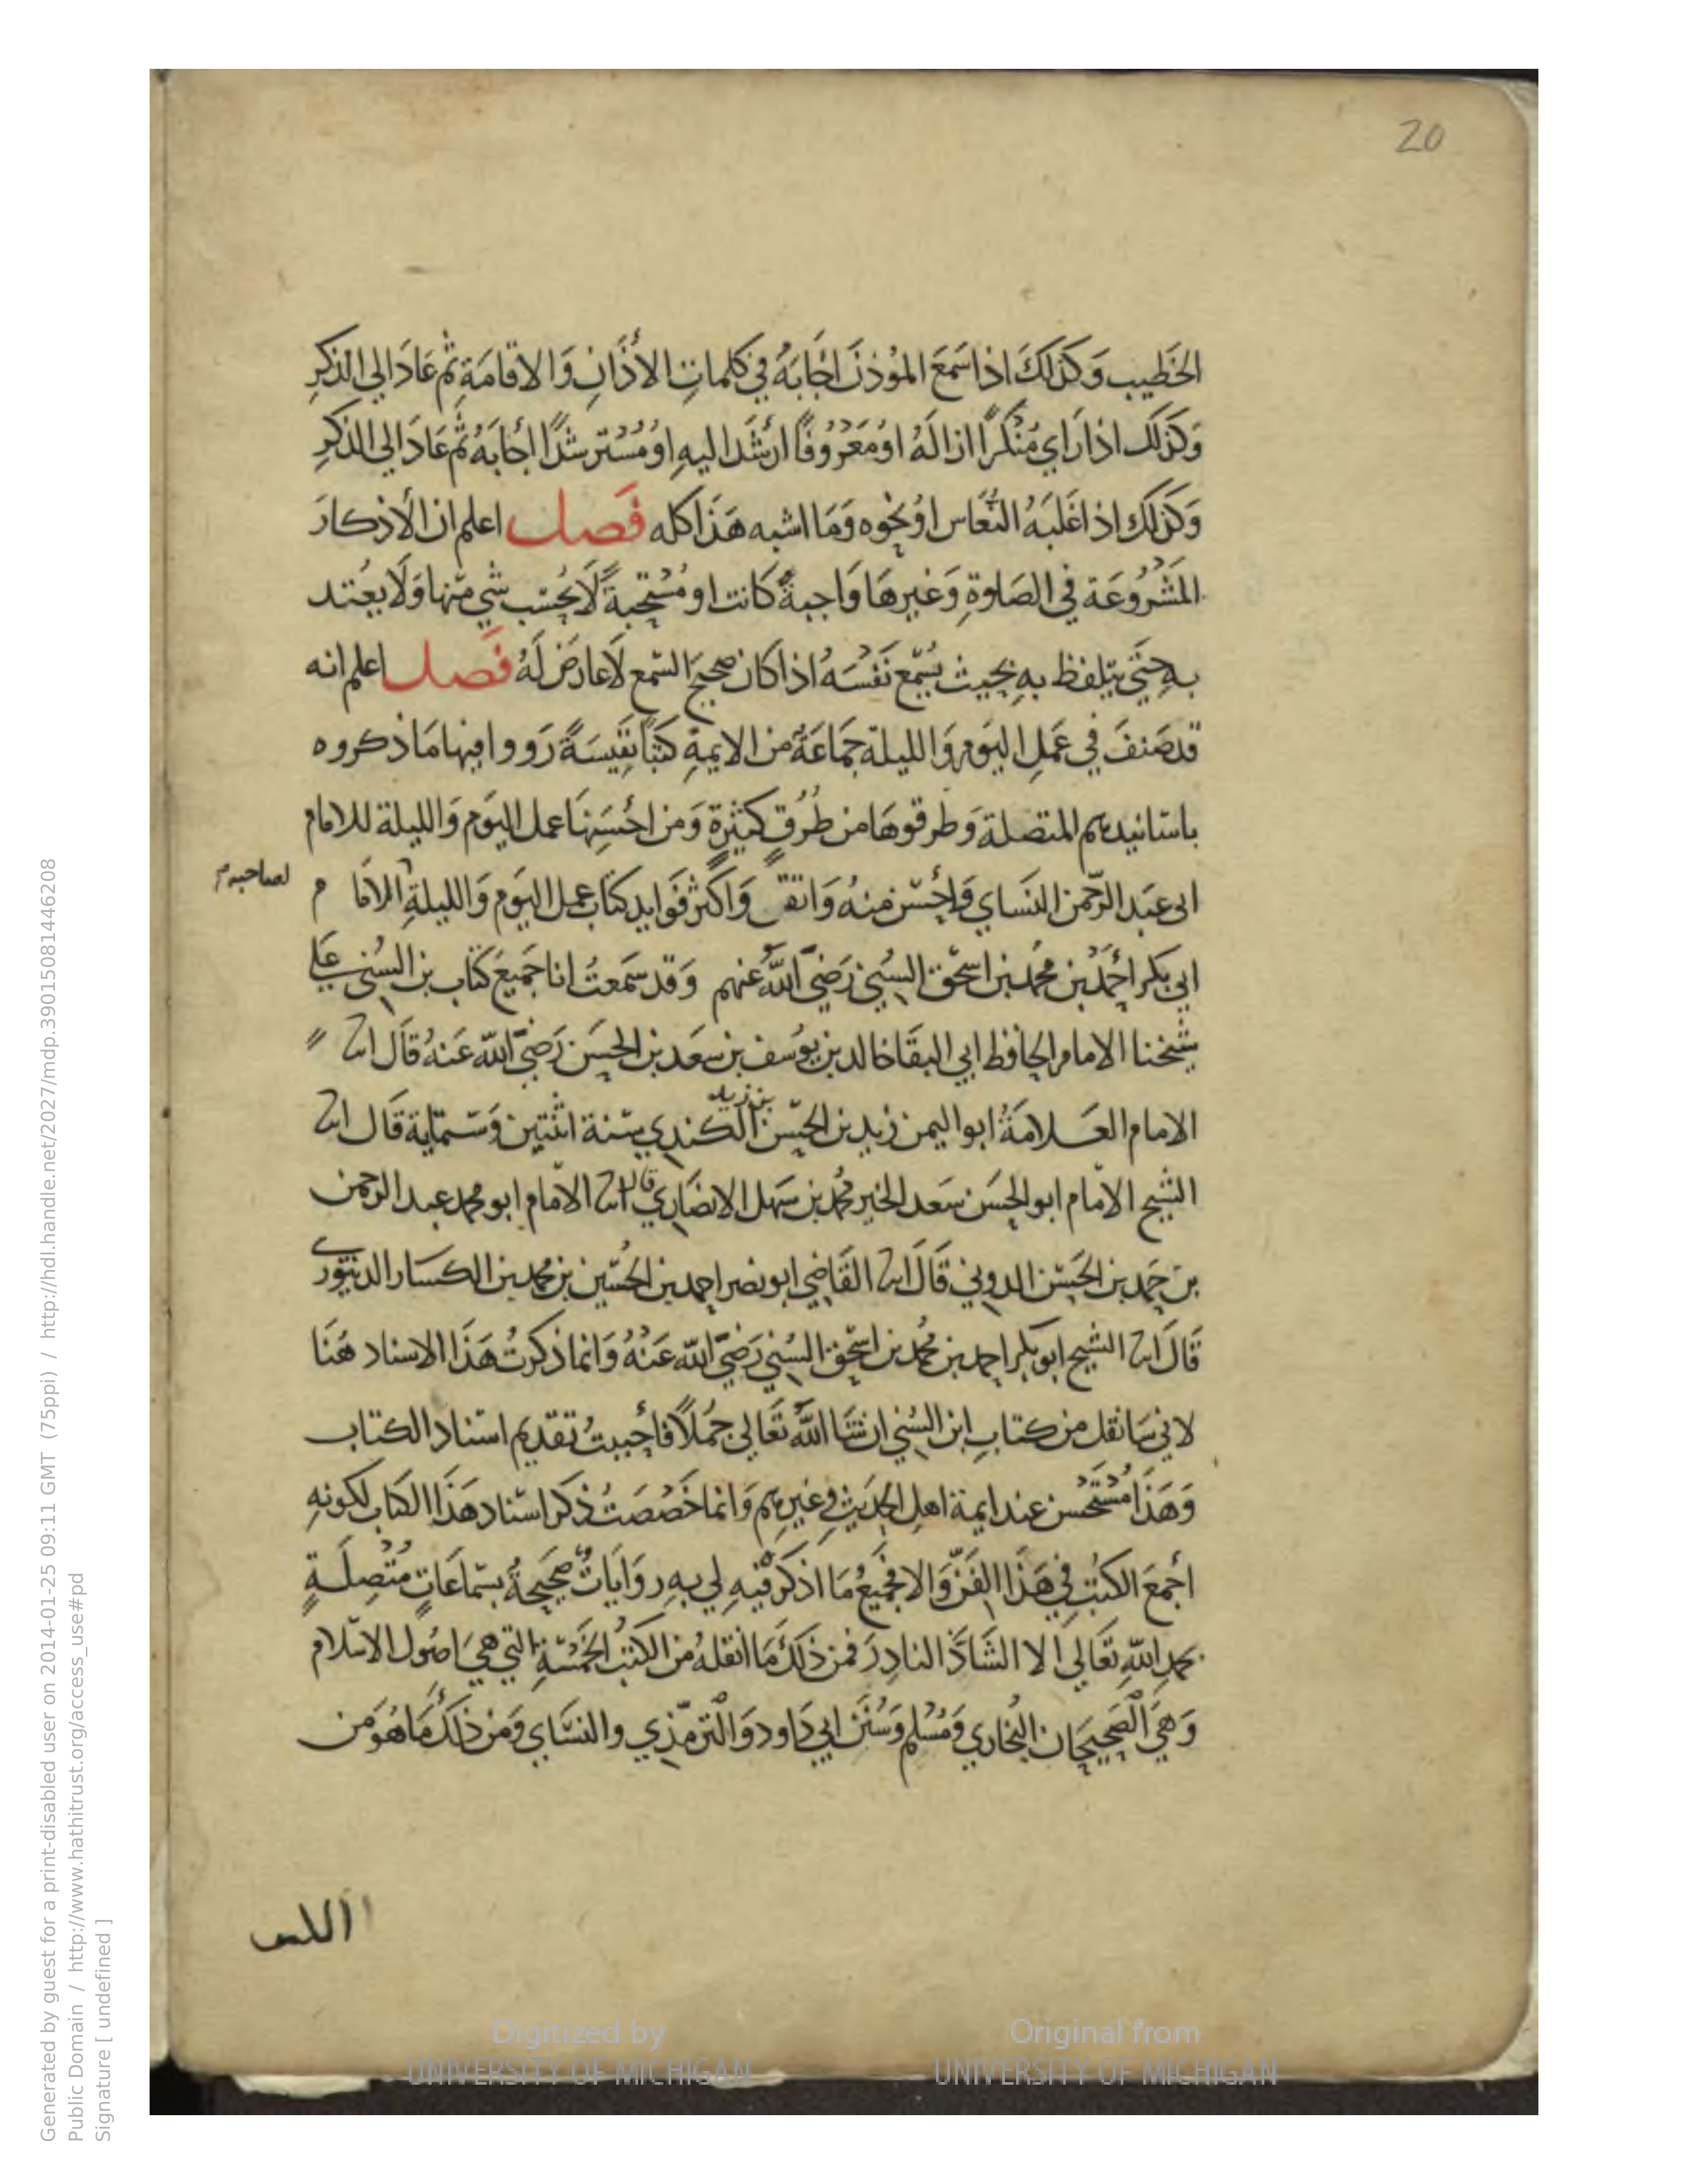 20
الخَطيب وَكذلكَ اذا سَمعَ الموُذنَ اجَابَهُ في كلماتِ الأذَانِ وَالاقامَةِ ثم عَادَ الي الذكرِ
وَكذلك اذا رَاي مُنْكرًا ازالهُ اوْ مَعْرُوفًا ارْشَد اليهِ اوْ مُسْترشدًا اجَابَهُ ثم عَادَ الي الذكرِ
وَكذلك اذا غَلبَهُ النعَاس اوْ نحوه وَمَا اشبه هَذا كله فَصل اعلم ان الأذكارَ
المشْرُوعَة في الصَلوةِ وَغيرهَا وَاجبةً كانت او مُسْتحبةً لَا يُحْسَب شي منها وَلَا يعْتد
بهِ حتَي يتلفظ بهِ بحيث يُسْمع نفسَهُ اذا كان صحيحَ السمع لَا عارضَ لَهُ فَصل اعلم انه
قد صَنفَ في عَملِ اليَومِ وَالليلة جمَاعَة من الايمةِ كتبًا نفيسَةً رَووا فيها مَا ذكروه
باسَانيدهم المتصلة وَطرقوهَا من طُرُقٍ كثيرةٍ وَمن احْسَنهَا عمل اليَوم وَالليلة للامام
ابي عَبد الرحمن النسَاي وَاحْسَن منهُ وَانفس وَاكثر فَوايد كتاب عمل اليَوم وَالليلةِ للامَام
لصاحبه
ابي بكر احْمَد بن محمد بن اسحق السُني رَضيَ اللهُ عنهم وَقد سَمعتُ انا جَميعَ كتاب بن السُني علي
شيخنا الامام الحافظ ابي البقَا خالد بن يوُسف بن سعَد بن الحسَن رَضيَ الله عَنهُ قاَل انا
الامام العَلامَةُ ابو اليمن زيد بن الحسَن بن زيد الكندي سَنة اثنتين وَستماية قَال انا
الشيخ الامَام ابو الحسَن سَعد الخير محمد بن سَهل الانصَاري قال انا الامَام ابو محمد عبد الرحمن
بن حَمد بن الحسَن الدوني قَالَ انا القَاضي ابو نصر احمد بن الحسَين بن محمد بن الكسَار الدينوري
قَالَ انا الشيخ ابو بكر احمد بن محمد بن اسحق السُني رَضيَ الله عَنْهُ وَانما ذكرتُ هَذا الاسناد هُنَا
لاني سَانقل من كتابِ ابن السُني ان شَا اللهُ تَعَالي جُملًا فاحْببتُ تقديم اسناد الكتاب
وَهَذا مُسْتحْسن عند ايمة اهل الحديث وغيرهم وَانما خَصَصَتُ ذكر اسناد هَذا الكتاب لكونهِ
اجْمعَ الكتُبِ في هَذا الفَنّ وَالا فجميعُ مَا اذكرُ فيهِ لي بهِ روَايَاتٌ صَحيحَةٌ بسَماعَاتٍ مُتْصِلَةٍ
بحمدِ اللهِ تعَالي الا الشَاذَّ النادِرَ فمن ذلكَ مَا انقلهُ من الكتبُ الخمْسَةِ التي هي اصُول الاسلام
وَهيَ الصَحيحَان البُخاري وَمُسْلم وَسُنَن ابي دَاود وَالترمذي والنسَاي وَمن ذلكَ مَا هُوَ من